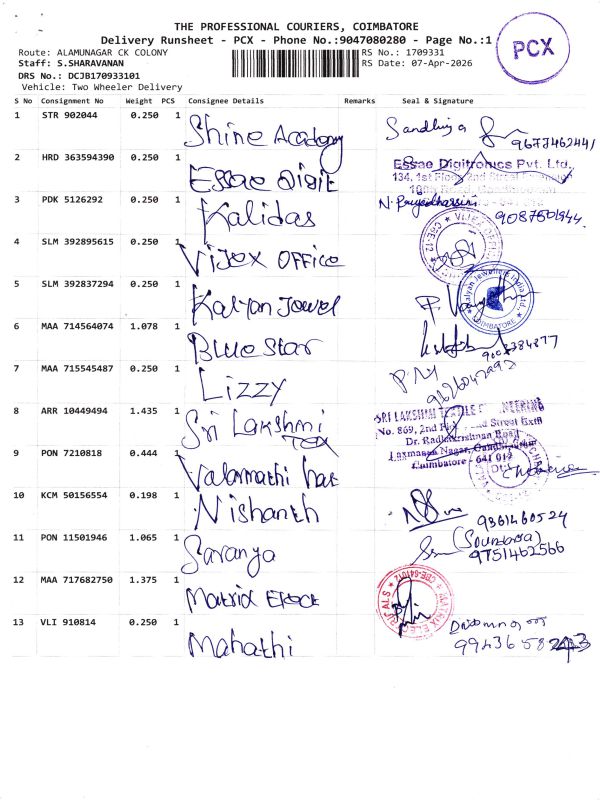 THE PROFESSIONAL COURIERS, COIMBATORE
Delivery Runsheet - PCX - Phone No.:9047080280 - Page No.:1
PCX
Route: ALAMUNAGAR CK COLONY
RS No.: 1709331
Staff: S.SHARAVANAN
RS Date: 07-Apr-2026
DRS No.: DCJB170933101
Vehicle: Two Wheeler Delivery
S No Consignment No Weight PCS Consignee Details Remarks Seal & Signature
1 STR 902044 0.250 1 Shine Academy Sandhiya 9677462441
2 HRD 363594390 0.250 1 Essae Digit
Essae Digitronics Pvt. Ltd.
134, 1st Floor, 2nd Street
3 PDK 5126292 0.250 1 Kalidas 9087501944
4 SLM 392895615 0.250 1 Vijex OFFICE
CBE-12
5 SLM 392837294 0.250 1 Kalyan Jewel
Kalyan Jewellers India Ltd.
COIMBATORE
6 MAA 714564074 1.078 1 Blue Star
7 MAA 715545487 0.250 1 Lizzy
8 ARR 10449494 1.435 1 Sri Lakshmi Tex
SRI LAKSHMI TEXTILE ENGINEERING
No. 869, 2nd Floor, 2nd Street Extn
Dr. Radhakrishnan Road
Laxmanan Nagar, Gandhipuram
Coimbatore - 641 012
9 PON 7210818 0.444 1 Valarmathi
10 KCM 50156554 0.198 1 Nishanth 9361460524
11 PON 11501946 1.065 1 Saranya (Soundarya)
9751462566
12 MAA 717682750 1.375 1 Matrix Elect
MATRIX ELECTRICALS
CBE-641012
13 VLI 910814 0.250 1 Mahathi